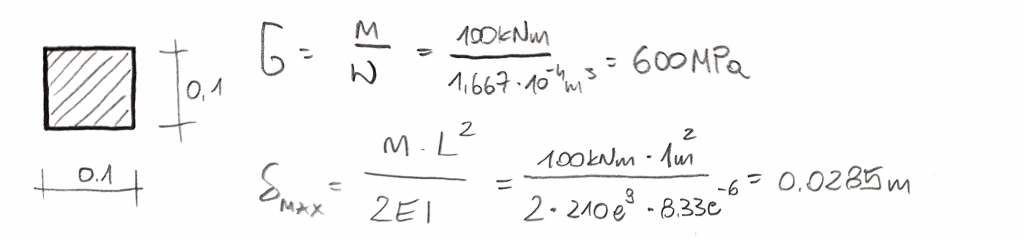 σ = M / W = 100kNm / 1,667·10⁻⁴m³ = 600MPa
0,1
0.1
δMAX = M·L² / 2EI = 100kNm·1m² / 2·210e³·8.33e⁻⁶ = 0.0285m